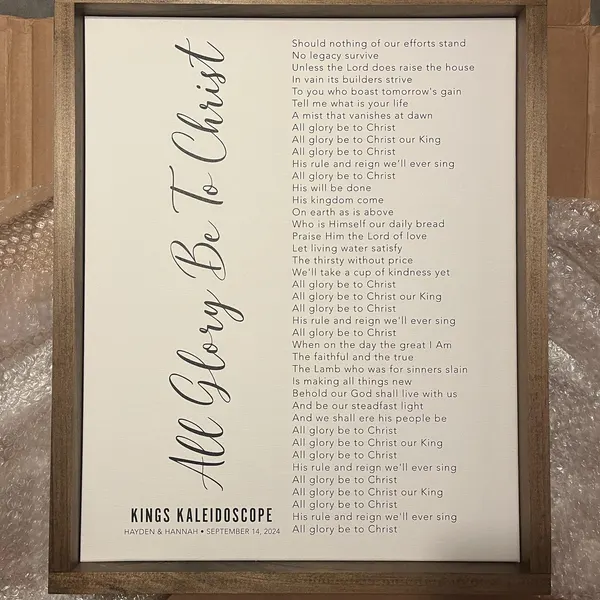 All Glory Be To Christ
KINGS KALEIDOSCOPE
HAYDEN & HANNAH • SEPTEMBER 14, 2024
Should nothing of our efforts stand
No legacy survive
Unless the Lord does raise the house
In vain its builders strive
To you who boast tomorrow's gain
Tell me what is your life
A mist that vanishes at dawn
All glory be to Christ
All glory be to Christ our King
All glory be to Christ
His rule and reign we'll ever sing
All glory be to Christ
His will be done
His kingdom come
On earth as is above
Who is Himself our daily bread
Praise Him the Lord of love
Let living water satisfy
The thirsty without price
We'll take a cup of kindness yet
All glory be to Christ
All glory be to Christ our King
All glory be to Christ
His rule and reign we'll ever sing
All glory be to Christ
When on the day the great I Am
The faithful and the true
The Lamb who was for sinners slain
Is making all things new
Behold our God shall live with us
And be our steadfast light
And we shall ere his people be
All glory be to Christ
All glory be to Christ our King
All glory be to Christ
His rule and reign we'll ever sing
All glory be to Christ
All glory be to Christ our King
All glory be to Christ
His rule and reign we'll ever sing
All glory be to Christ